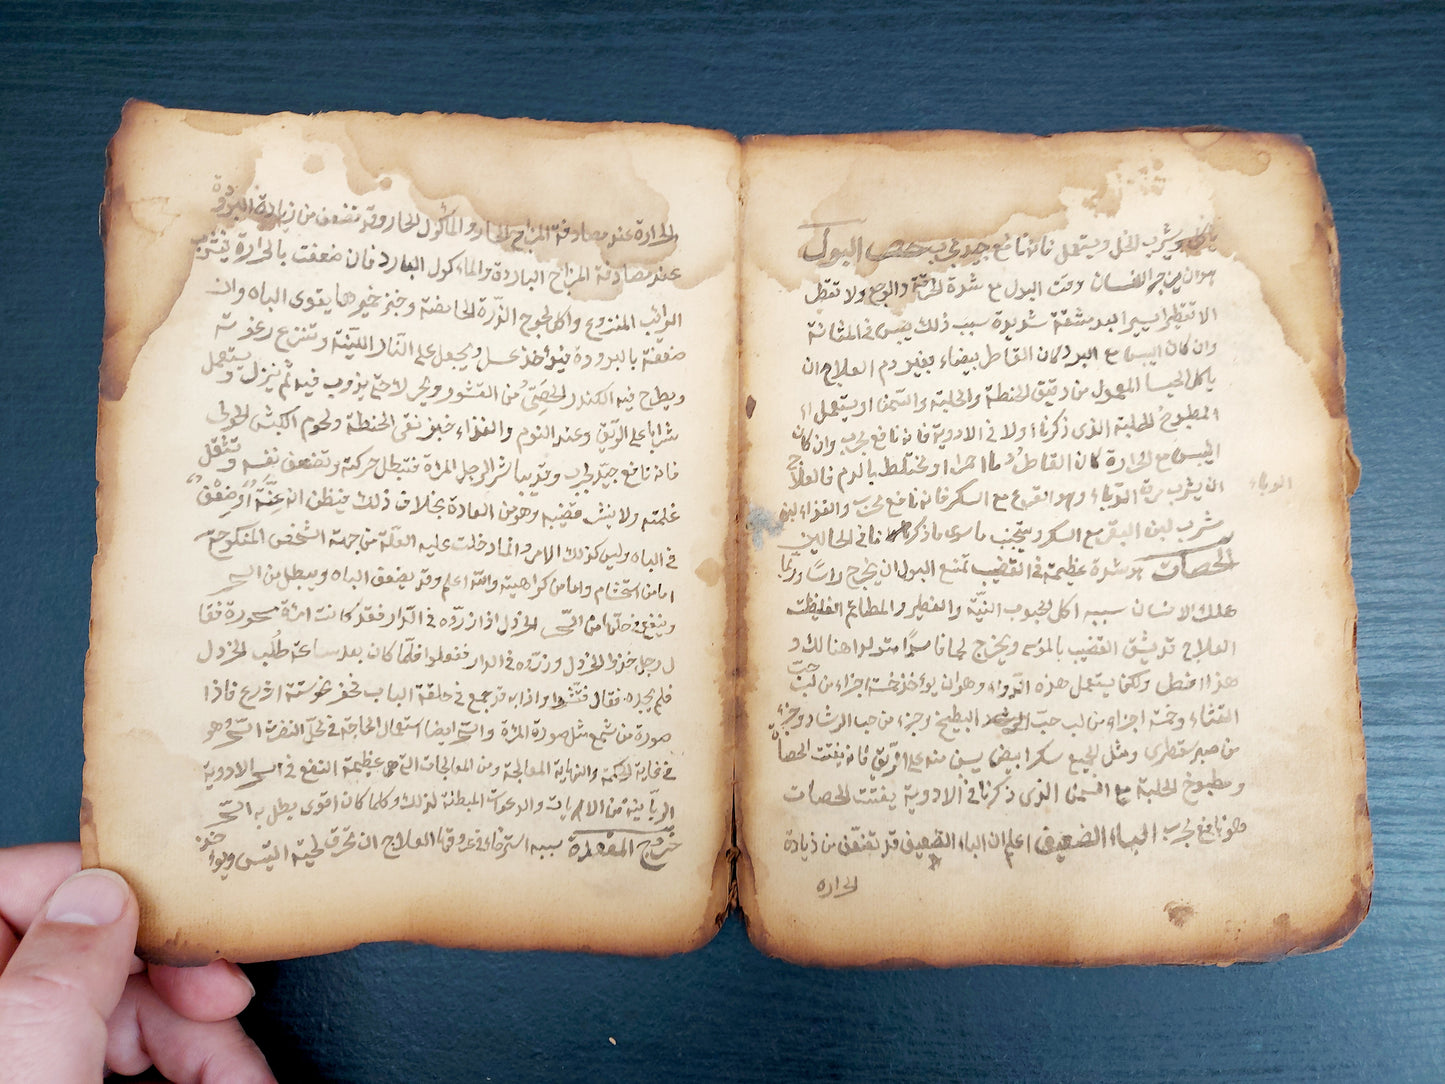 ويشرب الخل ويستعمل فانه نافع جيد مجرب حصر البول
هو ان يزجر الانسان وقت البول مع شدة الحرقة والوجع ولا تقطر
الا تقطيرا يسيرا بعد مشقة شديدة سبب ذلك يبس في المثانة
وان كان اليبس مع البرد كان القاطر بيضاء بغير دم العلاج ان
ياكل الحسا المعمول من دقيق الحنطة والحلبة والسمن او يستعمل
المطبوخ الحلبة الذى ذكرناه اولا في الادوية فانه نافع مجرب وان كان
اليبس مع الحرارة كان القاطر دما احمرا او مختلط بالدم فالعلاج
ان يشرب مرة الدباء وهو القرع مع السكر فانه نافع مجرب والغذاء لبن
الدباء
يشرب لبن البقر مع السكر ويتجنب ما سوى ما ذكرنا في الحالين
الحصات هو شدة عظيمة في القضيب تمنع البول ان يخرج راسا وربما
هلك الانسان سببه اكل الحبوب النية والفطير والمطاعم الغليظة
العلاج قد يشق القضيب بالموسى ويخرج لحما فاسدا متولدا هنالك و
هذا افضل ولكن يستعمل هذه الدواء وهو ان يؤخذ خمسة اجزاء من لب حب
القثاء وخمسة اجزاء من لب حب البطيخ وجزء من حب الرشاد وجزء
من صبر سقطرى ومثل الجميع سكر ابيض يسف منه على الريق فانه يفتت الحصاة
ومطبوخ الحلبة مع السمن الذى ذكرنا في الادوية يفتت الحصات
وهو نافع مجرب الباه الضعيف اعلم ان الباه الضعيف قد تضعف من زيادة
الحراره
الحرارة عند مصادفة المزاج الحار والمأكول الحار وقد تضعف من زيادة البرودة
عند مصادفة المزاج الباردة والماءكول البارد فان ضعفت بالحرارة فيشرب
الرائب المنزوع واكل لحوم الذرة الحامضة وخبز خميرها يقوى الباه وان
ضعفة بالبرودة فيؤخذ عسل ويجعل على النار اللينة وتنزع رغوته
ويطرح فيه الكندر الخصى من القشور ويحرك حتى يذوب فيه ثم ينزل ويستعمل
شرابا على الريق وعند النوم والغذاء خبز نقى الحنطة ولحوم الكبش الحولى
فانه نافع جيد مجرب وقد يباشر الرجل المراة فتبطل حركته وتضعف نفسه وتثقل
غلمته ولا ينشر قضيبه وهو من العادة بخلاف ذلك فيظن انه عنة او ضعف
في الباه وليس كذلك الامر وانما دخلت عليه العلة من جهة الشخص المنكوحة
اما من احتشام واما من كراهية والله اعلم وقد يضعف الباه ويبطل من السحر
وينفع في حلها من السحر الخردل اذا زروه في الدار فقد كانت امراة مسحورة فقا
ل رجل خذوا الخردل وزروه في الدار ففعلوا فلما كان بعد ساعة طلب الخردل
فلم يجده فقال فتشوا واذا به قد جمع في حلقة الباب فحفر نحو ستة اذرع فاذا
صورة من شمع مثل صورة المراة والسحر ايضا استعمال الحاجة في محل النفرت السحر هو
في غاية الحكمة والنهاية المعالجة ومن المعالجات التى هى عظيمة النفع في السحر الادوية
الربانية من الايات والدعوات المبطلة لذلك وكلما كان اقوى يبطل به السحر
خروج المقعدة سببه استرخاء في عروقها العلاج ان تحرق لحية التيس ويؤخذ